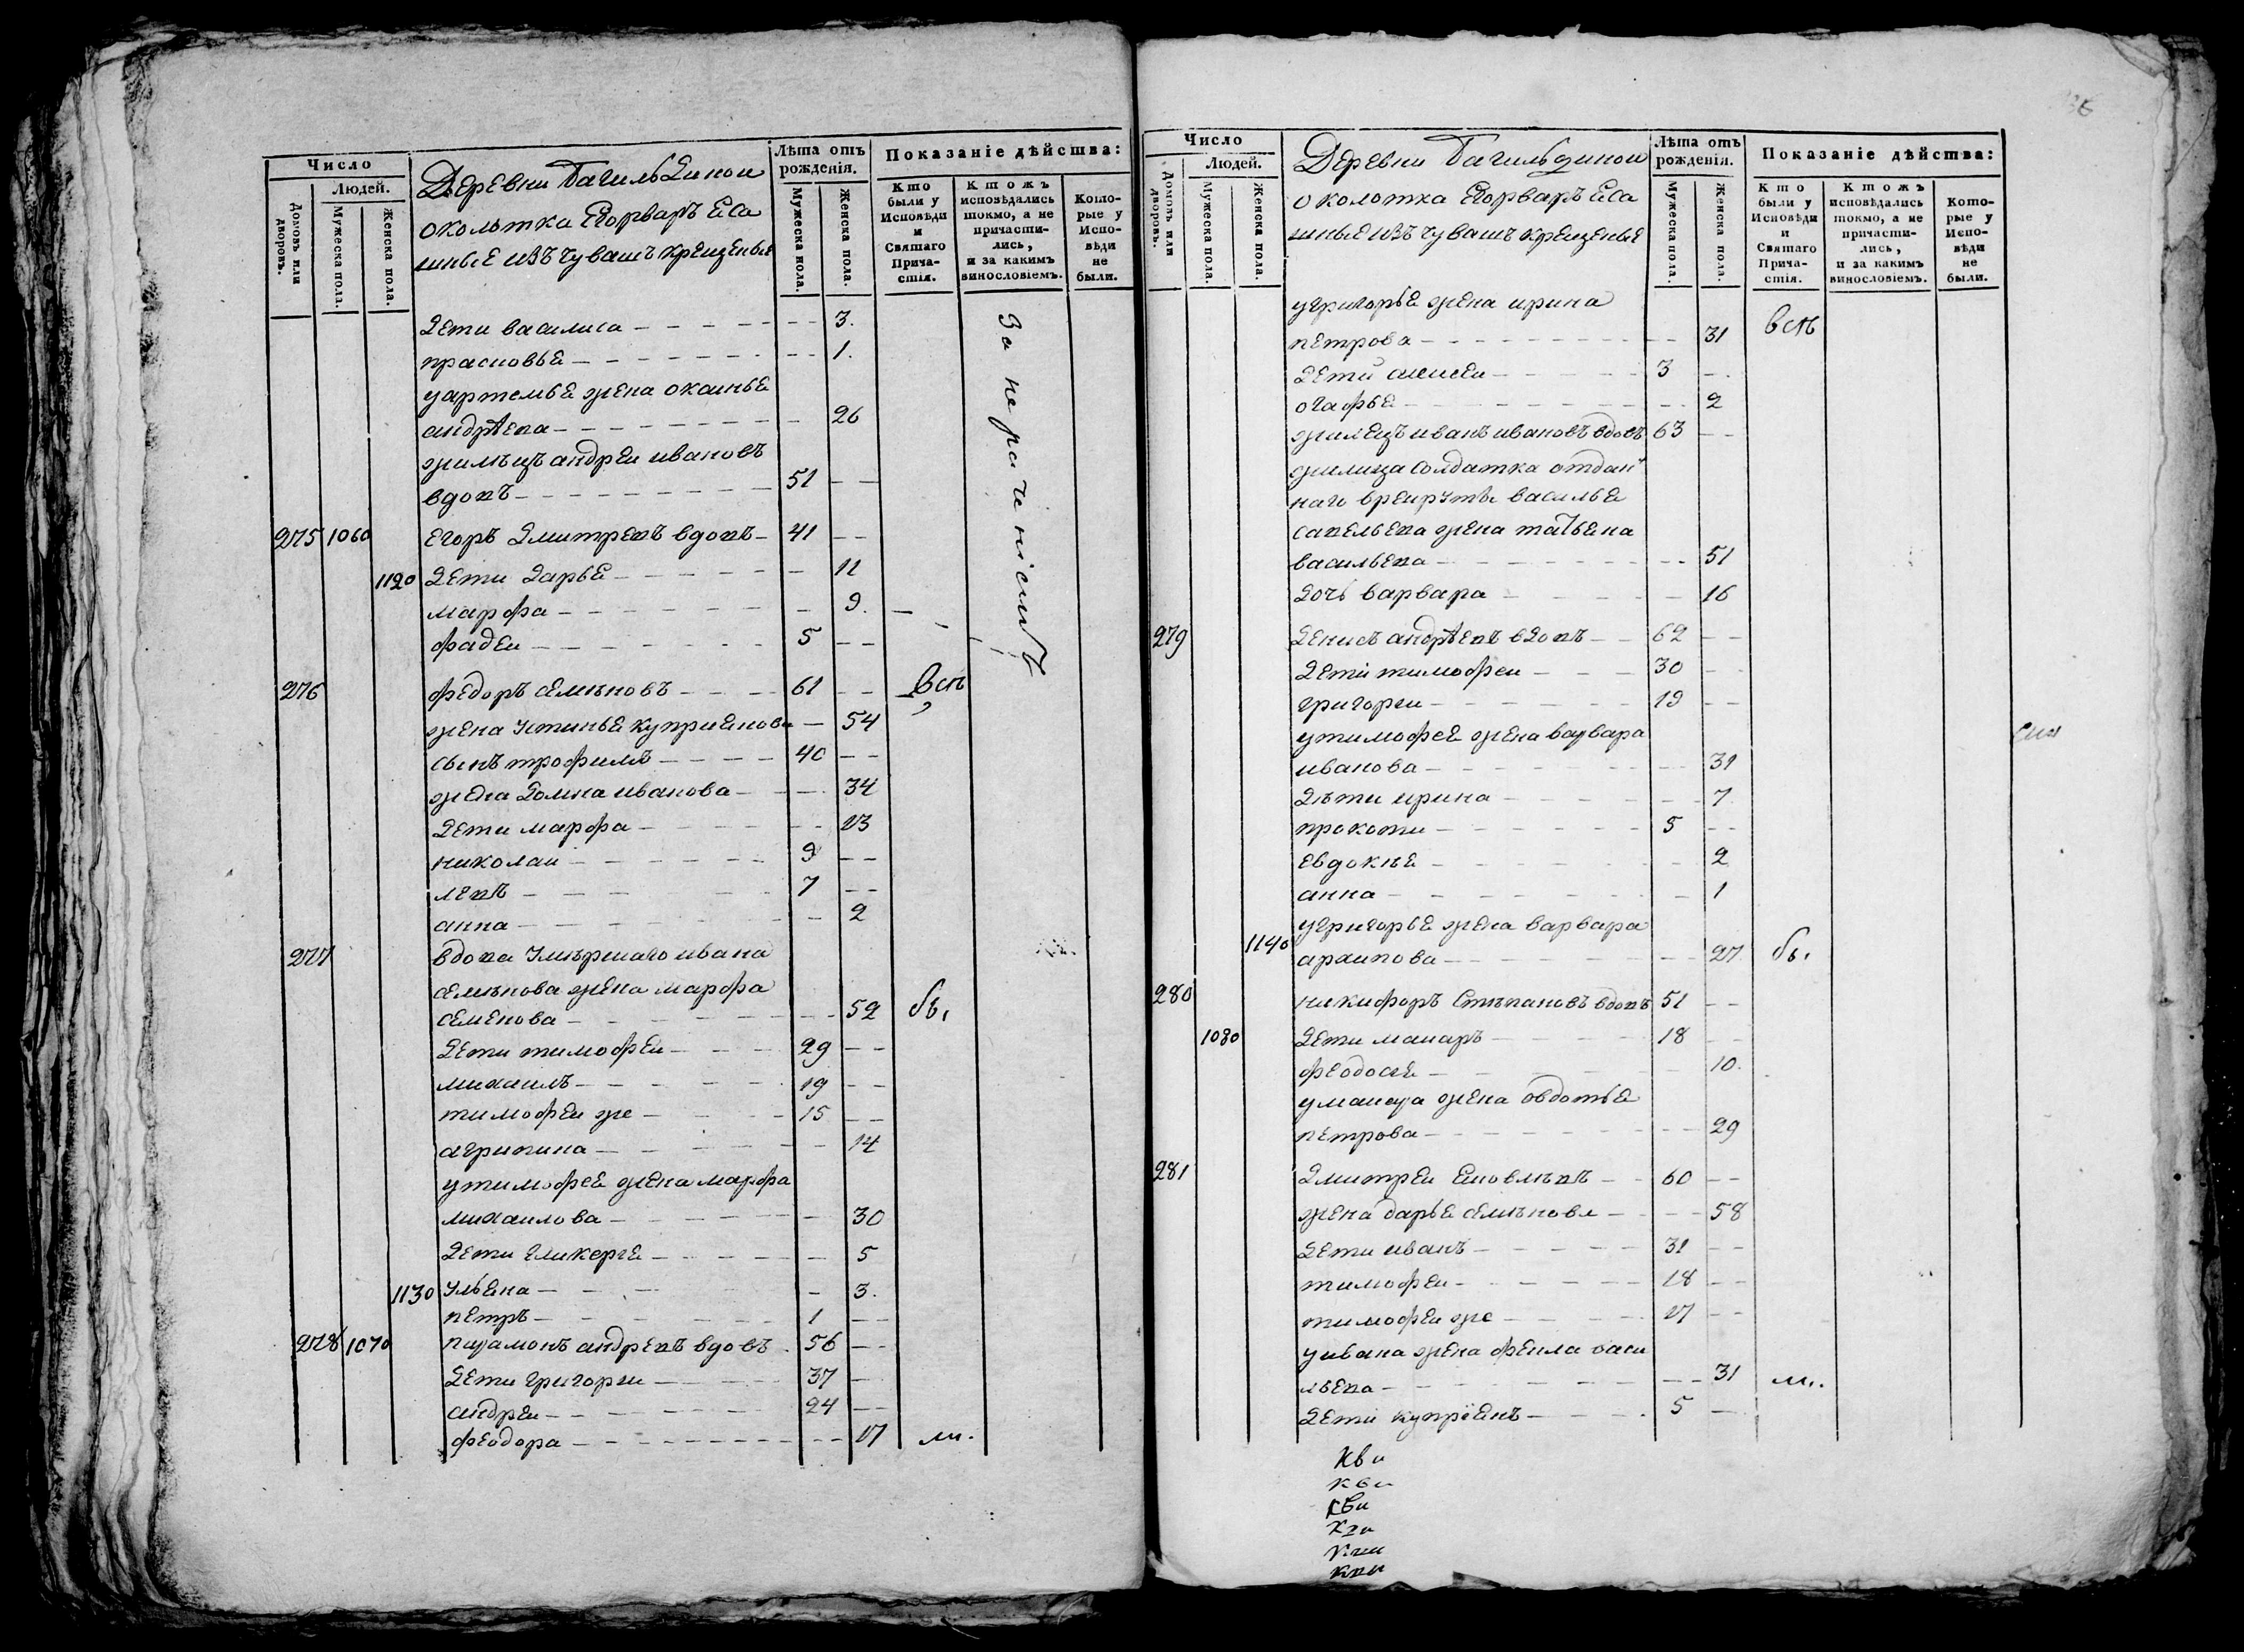 Число
Людей.
Домовъ или дворовъ.
Мужеска пола.
Женска пола.
Деревни Багильдинои
околотка Егорваръ Еса
шные изъ чувашъ крещеные
Лѣта отъ рожденія.
Мужеска пола.
Женска пола.
Показаніе дѣйства:
Кто были у Исповѣди и Святаго Причастія.
Ктожъ исповѣдались токмо, а не причастились, и за какимъ винословіемъ.
Которые у Исповѣди не были.
Дети василиса - - 3.
прасковья - - 1.
уартемья жена
андрѣева - 26
андреи ивановъ
вдовъ - 51 - -
275 1060 егоръ Дмитревъ вдовъ - 41 - -
1120 Дети Дарья - 11
марфа - 9. -
фадеи - 5 - -
276 федоръ семѣновъ - 61 - - всѣ
жена Устинья куприянова - 54
сынъ трофимъ - 40 - -
жена Домна иванова - 34
Дети марфа - 13
николаи - 9 - -
левъ - 7 - -
анна - 2
277 вдова Умѣршаго ивана
семѣнова жена марфа
семенова - 52 бы.
Дети тимофеи - 29 - -
михаилъ - 19 - -
тимофеи же - 15 - -
агрипина - 14
утимофея жена марфа
михаилова - 30
Дети гликерья - 5
1130 Ульяна - 3.
петръ - 1 - -
278 1070 парамонъ андревъ вдовъ - 56 - -
Дети григореи - 37 -
андреи - 24 - -
феодора - 17 ми.
Число
Людей.
Домовъ или дворовъ.
Мужеска пола.
Женска пола.
Деревни Багильдинои
околотка Егорваръ Еса
шные изъ чувашъ крещеные
Лѣта отъ рожденія.
Мужеска пола.
Женска пола.
Показаніе дѣйства:
Кто были у Исповѣди и Святаго Причастія.
Ктожъ исповѣдались токмо, а не причастились, и за какимъ винословіемъ.
Которые у Исповѣди не были.
угригорья жена ирина
петрова - 31 всѣ
Дети алексеи - 3 -
огафья - 2
иванъ ивановъ вдовъ 63 - -
солдатка отдан
наго врекруты василья
савельева жена татьяна
васильева - 51
Дочь варвара - 16
279 Денисъ андрѣевъ вдовъ - 62 - -
Дети тимофеи - 30 -
григореи - 19 - -
утимофея жена варвара
иванова - 31
Дѣти ирина - 7
прокопи - 5 - -
евдокѣя - 2
анна - 1
угригорья жена варвара
1140 архипова - 27 бы.
280 никифоръ Стѣпановъ вдовъ 51 - -
1080 Дети макаръ - 18 - -
феодосья - 10.
умакара жена овдотья
петрова - 29
281 Дмитреи - 60 - -
жена дарья семѣнова - 58
Дети иванъ - 31 - -
тимофеи - 18 - -
тимофеи же - 17 - -
уивана жена фекла васи
льева - 31 ми.
Дети купріянъ - 5 -